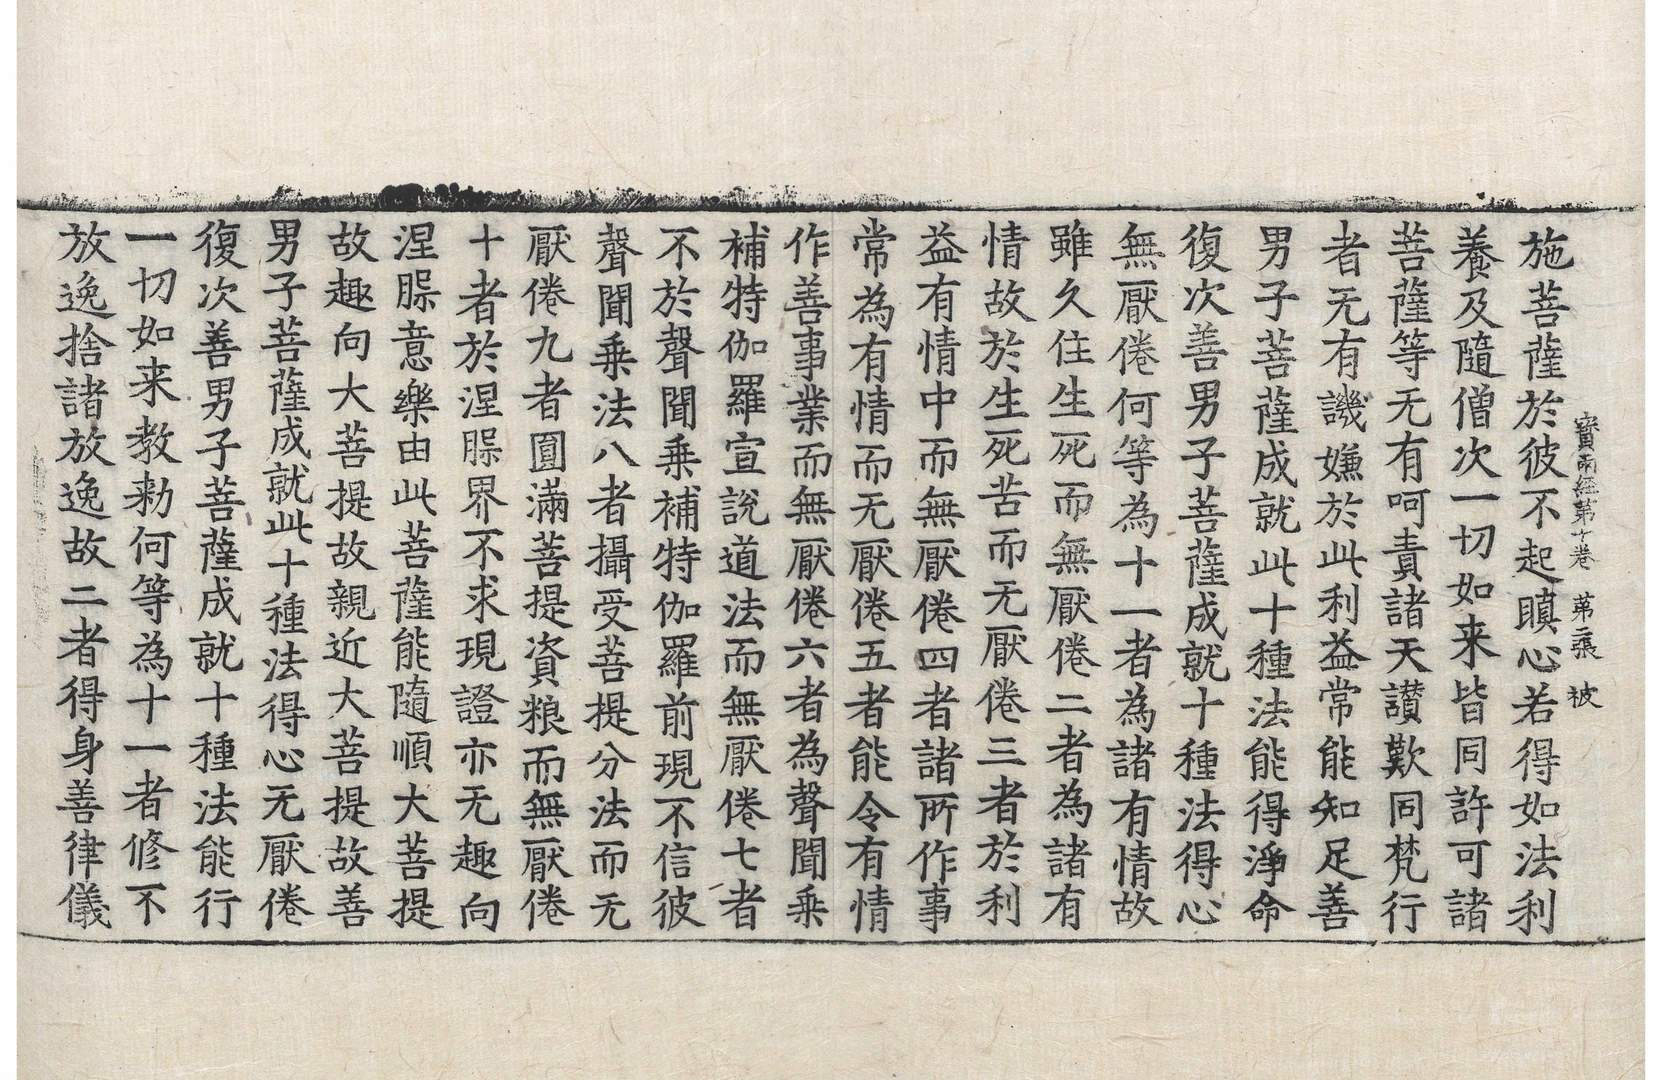 寳雨經第十卷 苐二張 被
施菩薩於彼不起瞋心若得如法利
養及隨僧次一切如来皆同許可諸
菩薩等无有呵責諸天讃歎同梵行
者无有譏嫌於此利益常能知足善
男子菩薩成就此十種法能得淨命
復次善男子菩薩成就十種法得心
無厭倦何等為十一者為諸有情故
雖久住生死而無厭倦二者為諸有
情故於生死苦而无厭倦三者於利
益有情中而無厭倦四者諸所作事
常為有情而无厭倦五者能令有情
作善事業而無厭倦六者為聲聞乗
補特伽羅宣說道法而無厭倦七者
不於聲聞乗補特伽羅前現不信彼
聲聞乗法八者攝受菩提分法而无
厭倦九者圓滿菩提資粮而無厭倦
十者於涅槃界不求現證亦无趣向
涅槃意樂由此菩薩能隨順大菩提
故趣向大菩提故親近大菩提故善
男子菩薩成就此十種法得心无厭倦
復次善男子菩薩成就十種法能行
一切如来教勑何等為十一者修不
放逸捨諸放逸故二者得身善律儀